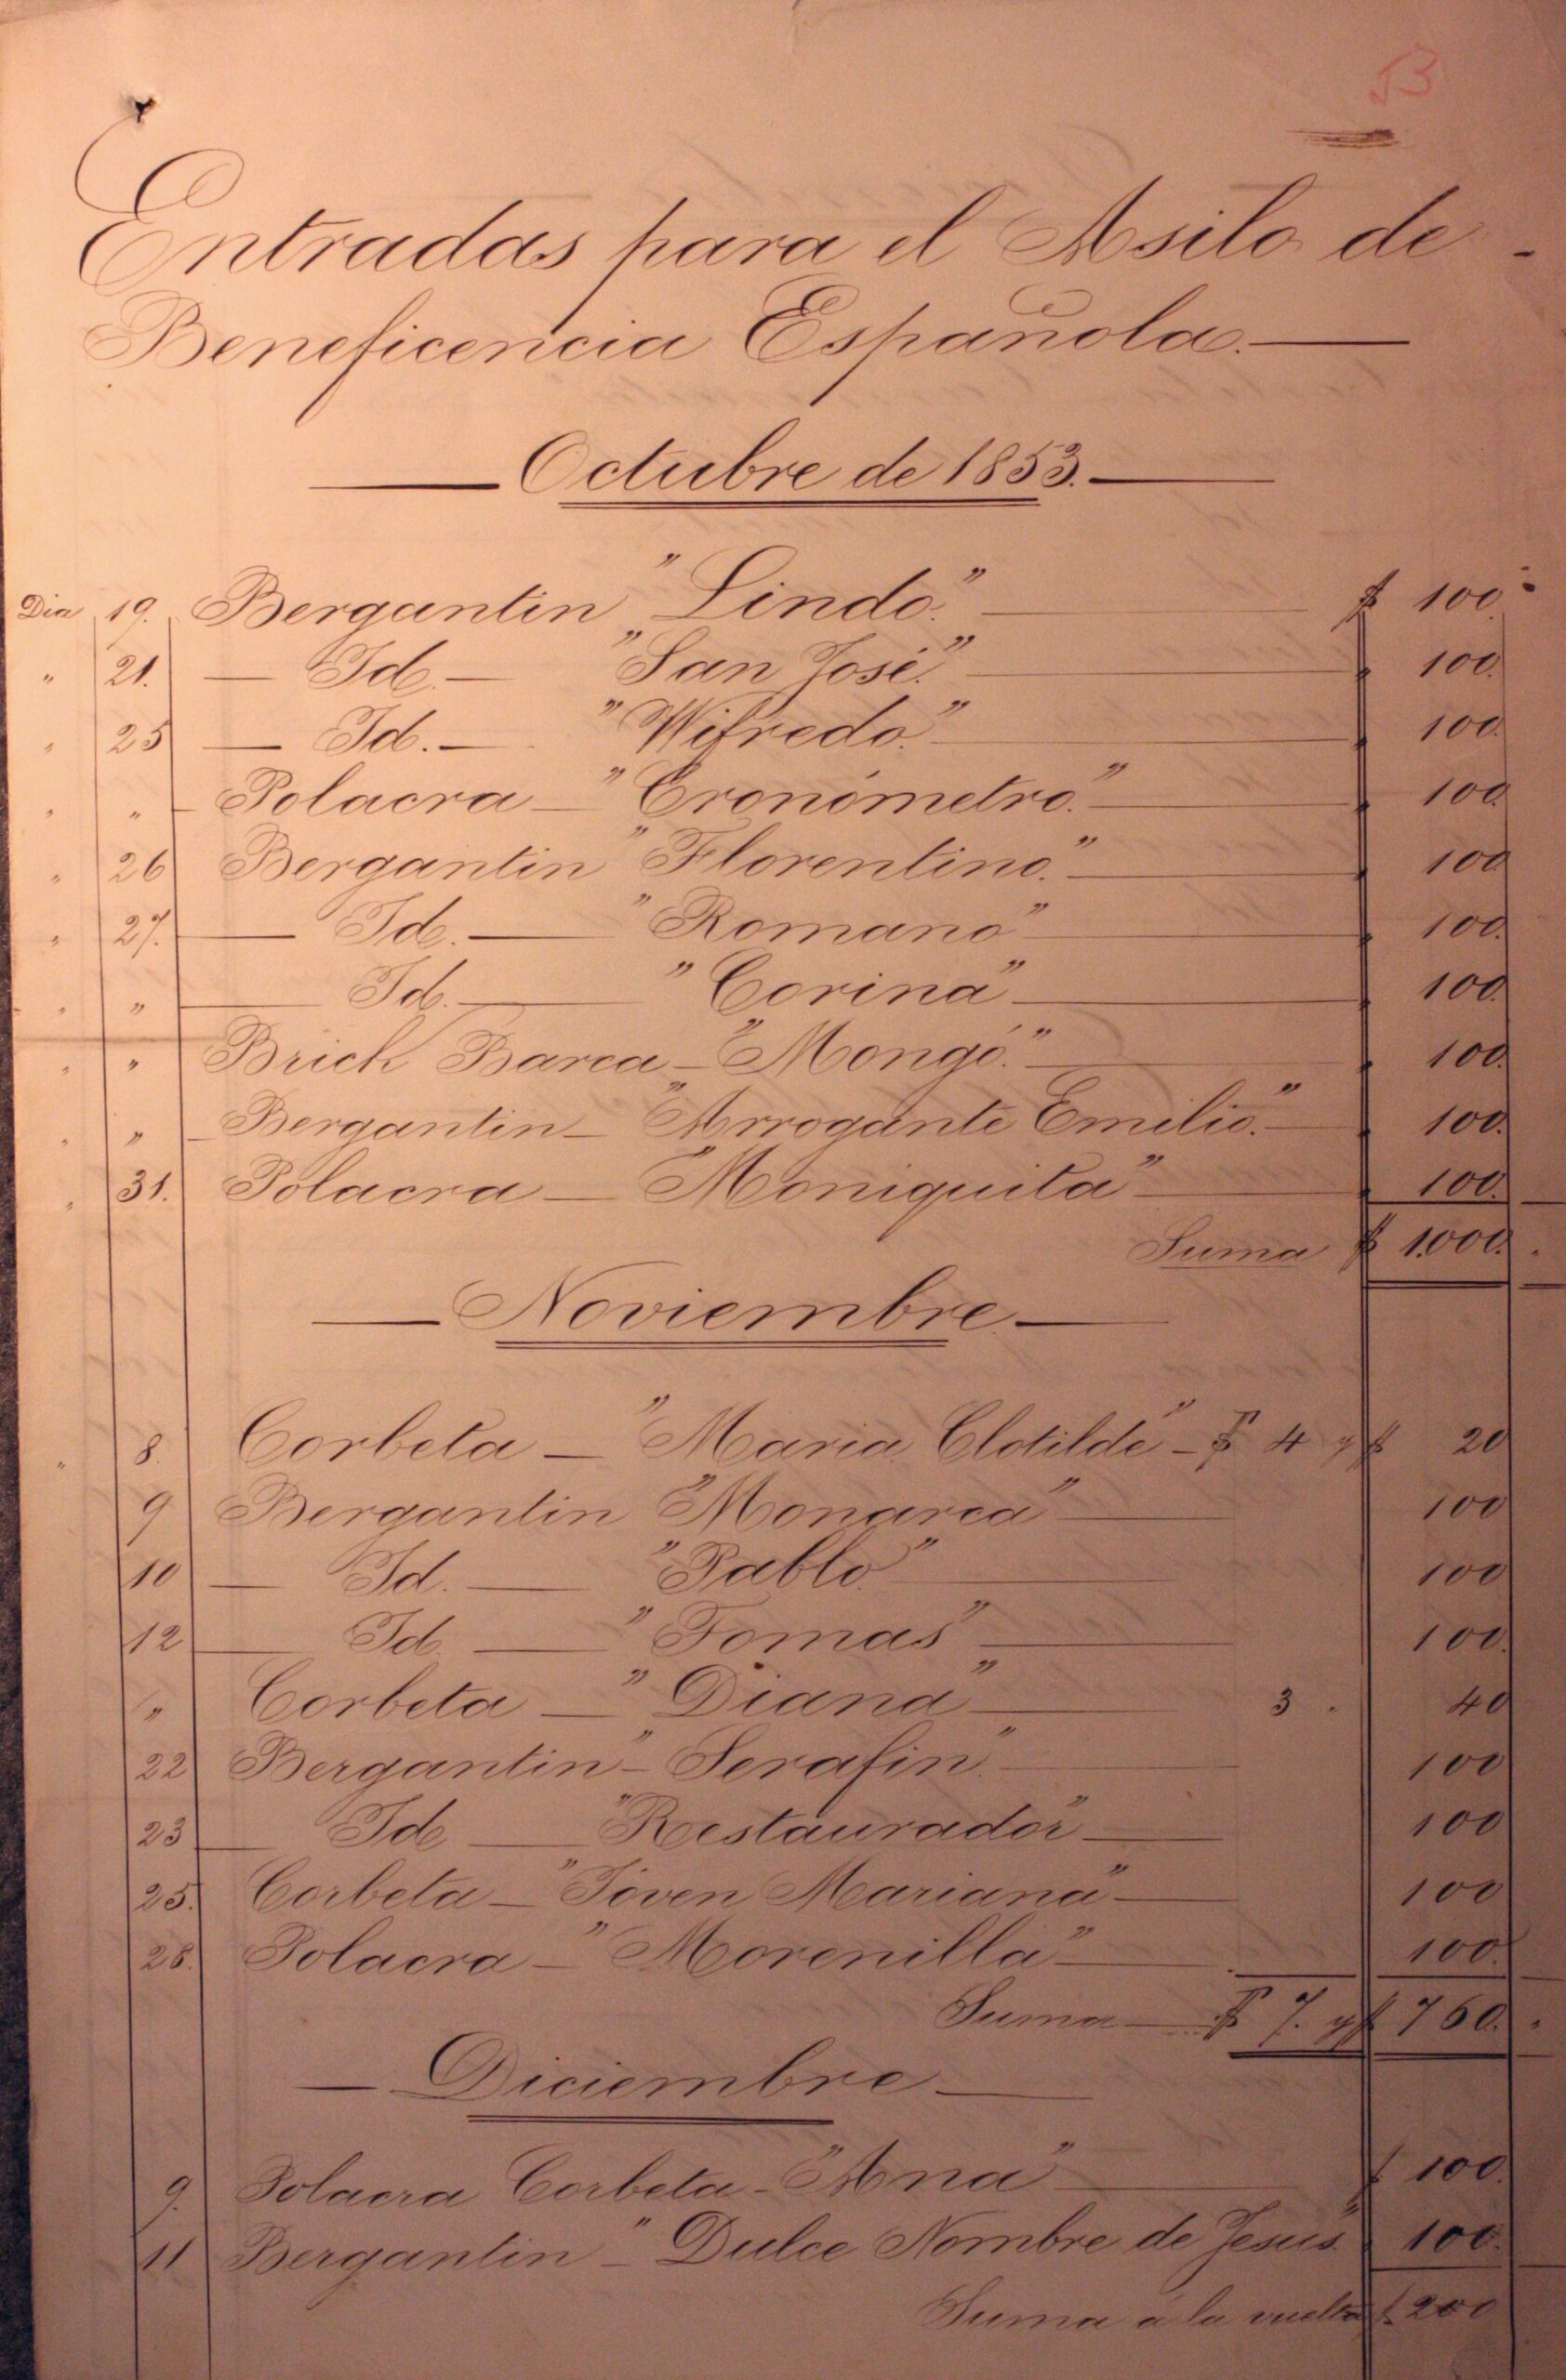 53
Entradas para el Asilo de -
Beneficencia Española.—
— Octubre de 1853. —
Dia 19. Bergantin "Lindo." — $ 100
" 21. — Id. — "San José." — " 100.
" 25 — Id. — "Wifredo." — " 100.
" " — Polacra — "Cronómetro." — " 100
" 26 Bergantin "Florentino." — " 100
" 27. — Id. — "Romano" — " 100.
" " — Id. — "Corina" — " 100.
" " Brick Barca — "Mongó." — " 100.
" " — Bergantin — "Arrogante Emilio." — " 100.
" 31. Polacra — "Moniquita" — " 100.
Suma $ 1.000. "
— Noviembre —
" 8. Corbeta — "Maria Clotilde" — $ 4 y $ 20
9 Bergantin "Monarca" — 100
10 — Id. — "Pablo." — 100
12 — Id. — "Tomas" — 100.
" Corbeta — "Diana" — 3 " 40
22 Bergantin — "Serafin." — 100
23 — Id — "Restaurador" — 100
25. Corbeta — "Jóven Mariana" — 100
28. Polacra — "Morenilla" — 100.
Suma — $ 7. y $ 760. "
— Diciembre —
9. Polacra Corbeta — "Ana" — $ 100.
11 Bergantin — "Dulce Nombre de Jesus." 100.
Suma á la vuelta $ 200